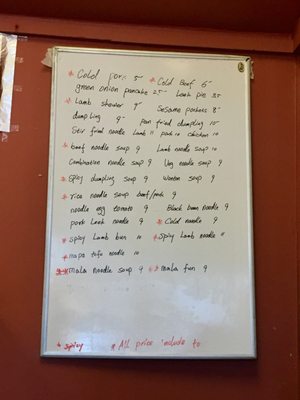 * Cold pork 5- * Cold Beef 6-
green onion pancake 25- Leek pie 35
* Lamb shewer 9- Sesame pockets 8-
dumpling 9- pan fried dumpling 10-
Stir fried noodle Lamb 11 pork 10 chicken 10
* beef noodle soup 9 Lamb noodle soup 10
Combination noodle soup 9 Veg noodle soup 9
* Spicy dumpling soup 9 Wonton soup 9
* rice noodle soup beef/pork 9
noodle egg tomato 9 Black bean noodle 9
pork Leek noodle 9 * Cold noodle 9
* spicy Lamb bun 10 * Spicy Lamb noodle 11
* napa tofu noodle 10
** mala noodle soup 9 ** mala fun 9
* spicy * All price include to